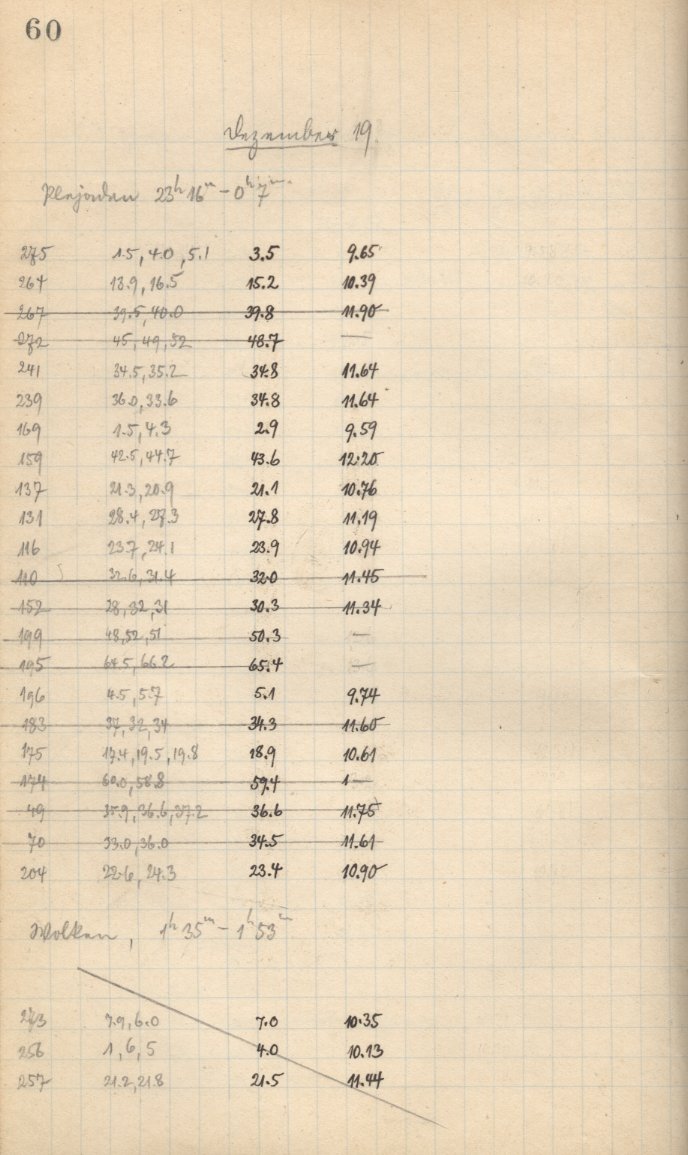 60
Dezember 19.
Plejaden 23h 16m - 0h 7m.
275 1.5, 4.0, 5.1 3.5 9.65
264 13.9, 16.5 15.2 10.39
267 39.5, 40.0 39.8 11.90
272 45, 49, 52 48.7 —
241 34.5, 35.2 34.8 11.64
239 36.0, 33.6 34.8 11.64
169 1.5, 4.3 2.9 9.59
159 42.5, 44.7 43.6 12.20
137 21.3, 20.9 21.1 10.76
131 28.4, 27.3 27.8 11.19
116 23.7, 24.1 23.9 10.94
110 32.6, 31.4 32.0 11.45
152 28, 32, 31 30.3 11.34
199 48, 52, 51 50.3 —
195 64.5, 66.2 65.4 —
196 4.5, 5.7 5.1 9.74
183 37, 32, 34 34.3 11.60
175 17.4, 19.5, 19.8 18.9 10.61
174 60.0, 58.8 59.4 1 —
49 35.9, 36.6, 37.2 36.6 11.75
70 33.0, 36.0 34.5 11.61
204 22.6, 24.3 23.4 10.90
Wolken, 1h 35m - 1h 53m
273 7.9, 6.0 7.0 10.35
256 1, 6, 5 4.0 10.13
257 21.2, 21.8 21.5 11.44